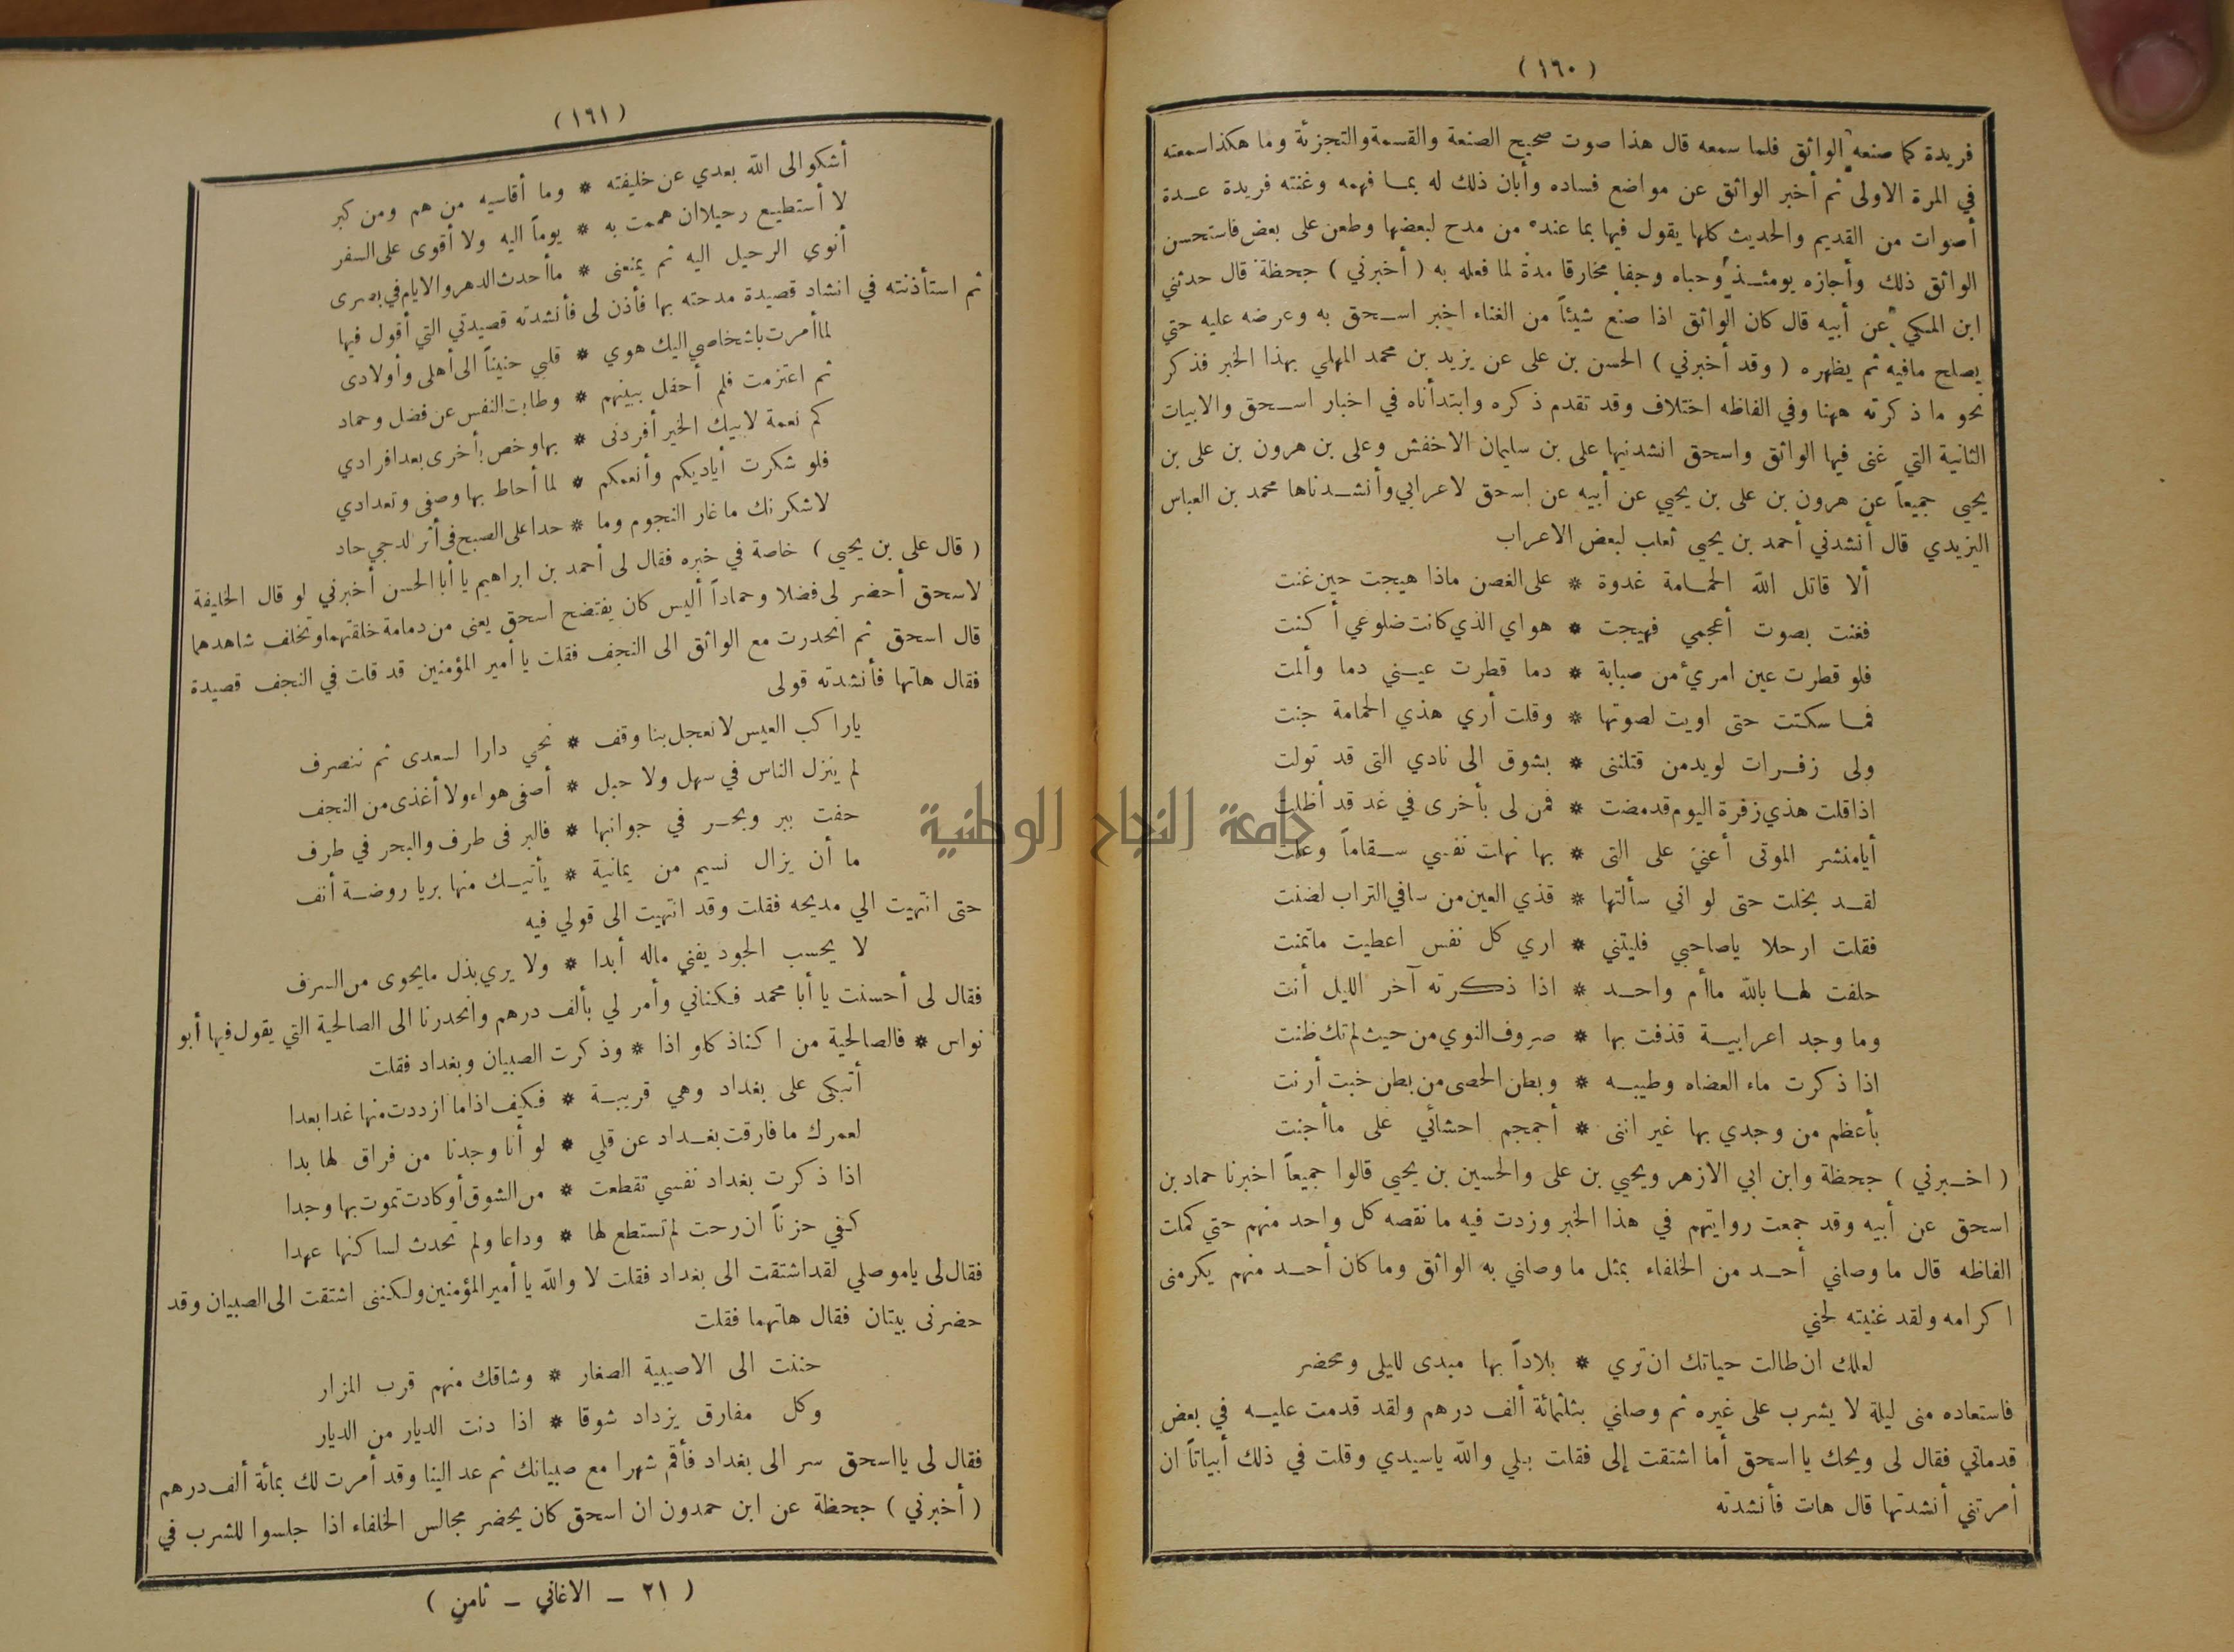 (١٦٠)
فريدة كما صنعه الواثق فلما سمعه قال هذا صوت صحيح الصنعة والقسمة والتجزئة وما هكذا سمعته
في المرة الاولى ثم أخبر الواثق عن مواضع فساده وأبان ذلك له بما فهمه وغنته فريدة عدة
أصوات من القديم والحديث كلها يقول فيها بما عنده من مدح لبعضها وطعن على بعض فاستحسن
الواثق ذلك وأجازه يومئذ وحباه وجفا مخارقا مدة لما فعله به ( أخبرني ) جحظة قال حدثني
ابن المكي عن أبيه قال كان الواثق اذا صنع شيئاً من الغناء اخبر اسحق به وعرضه عليه حتي
يصلح مافيه ثم يظهره ( وقد أخبرني ) الحسن بن على عن يزيد بن محمد المهلبي بهذا الخبر فذكر
نحو ما ذكرته ههنا وفي الفاظه اختلاف وقد تقدم ذكره وابتدأناه في اخبار اسحق والابيات
الثانية التي غنى فيها الواثق واسحق انشدنيها على بن سليمان الاخفش وعلى بن هرون بن على بن
يحيي جميعاً عن هرون بن على بن يحيي عن أبيه عن اسحق لاعرابي وأنشدناها محمد بن العباس
اليزيدي قال أنشدني أحمد بن يحيى ثعلب لبعض الاعراب
ألا قاتل الله الحمامة غدوة * على الغصن ماذا هيجت حين غنت
فغنت بصوت أعجمي فهيجت * هواي الذي كانت ضلوعي أكنت
فلو قطرت عين امرئ من صبابة * دما قطرت عيني دما وألمت
فما سكتت حتى اويت لصوتها * وقلت أري هذي الحمامة جنت
ولى زفرات لويدمن قتلننى * بشوق الى نادي التى قد تولت
اذا قلت هذي زفرة اليوم قد مضت * فمن لى بأخرى في غد قد أظلت
أيامنشر الموتى أعني على التى * بها نهلت نفسي سقاماً وعلت
لقد بخلت حتى لو اني سألتها * قذي العين من سافي التراب لضنت
فقلت ارحلا ياصاحبي فليتني * اري كل نفس اعطيت ماتمنت
حلفت لها بالله ماأم واحد * اذا ذكرته آخر الليل أنت
وما وجد اعرابية قذفت بها * صروف النوي من حيث لم تك ظنت
اذا ذكرت ماء العضاه وطيبه * وبطن الحصى من بطن خبت أرنت
بأعظم من وجدي بها غير اننى * أجمجم احشائي على ماأجنت
( اخبرني ) جحظة وابن ابي الازهر ويحيي بن على والحسين بن يحيي قالوا جميعاً اخبرنا حماد بن
اسحق عن أبيه وقد جمعت روايتهم في هذا الخبر وزدت فيه ما نقصه كل واحد منهم حتي كملت
الفاظه قال ما وصلني أحد من الخلفاء بمثل ما وصلني به الواثق وما كان أحد منهم يكرمنى
اكرامه ولقد غنيته لحني
لعلك ان طالت حياتك ان تري * بلاداً بها مبدى لليلى ومحضر
فاستعاده منى ليلة لا يشرب على غيره ثم وصلني بثلثمائة ألف درهم ولقد قدمت عليه في بعض
قدماتي فقال لى ويحك يا اسحق أما اشتقت إلى فقلت بلي والله ياسيدي وقلت في ذلك أبياتاً ان
أمرتني أنشدتها قال هات فأنشدته
(١٦١)
أشكو الى الله بعدي عن خليفته * وما أقاسيه من هم ومن كبر
لا أستطيع رحيلا ان هممت به * يوماً اليه ولا أقوى على السفر
أنوي الرحيل اليه ثم يمنعنى * ماأحدث الدهر والايام في بصرى
ثم استأذنته في انشاد قصيدة مدحته بها فأذن لى فأنشدته قصيدتي التي أقول فيها
لما أمرت باشخاصي اليك هوي * قلبي حنيناً الى أهلى وأولادى
ثم اعتزمت فلم أحفل ببينهم * وطابت النفس عن فضل وحماد
كم نعمة لابيك الخير أفردنى * بها وخص بأخرى بعد افرادي
فلو شكرت أياديكم وأنعمكم * لما أحاط بها وصفى وتعدادي
لاشكرنك ما غار النجوم وما * حدا على الصبح فى أثر لدجي حاد
( قال على بن يحيى ) خاصة في خبره فقال لى أحمد بن ابراهيم يا أبا الحسن أخبرني لو قال الخليفة
لاسحق أحضر لى فضلا وحماداً أليس كان يفتضح اسحق يعنى من دمامة خلقتهما وتخلف شاهدهما
قال اسحق ثم انحدرت مع الواثق الى النجف فقلت يا أمير المؤمنين قد قلت في النجف قصيدة
فقال هاتها فأنشدته قولى
ياراكب العيس لا تعجل بنا وقف * نحي دارا لسعدى ثم ننصرف
لم ينزل الناس في سهل ولا جبل * أصفى هواء ولا أغذى من النجف
حفت ببر وبحر في جوانبها * فالبر فى طرف والبحر في طرف
ما أن يزال نسيم من يمانية * يأتيك منها بريا روضة أنف
حتى انتهيت الي مديحه فقلت وقد انتهيت الى قولي فيه
لا يحسب الجود يفني ماله أبدا * ولا يري بذل مايحوى من السرف
فقال لى أحسنت يا أبا محمد فكناني وأمر لي بألف درهم وانحدرنا الى الصالحية التي يقول فيها أبو
نواس * فالصالحية من اكناذ كاو اذا * وذكرت الصبيان وبغداد فقلت
أتبكى على بغداد وهي قريبة * فكيف اذا ما ازددت منها غدا بعدا
لعمرك ما فارقت بغداد عن قلي * لو أنا وجدنا من فراق لها بدا
اذا ذكرت بغداد نفسي تقطعت * من الشوق أو كادت تموت بها وجدا
كفي حزناً ان رحت لم تستطع لها * وداعا ولم تحدث لساكنها عهدا
فقال لى ياموصلي لقد اشتقت الى بغداد فقلت لا والله يا أمير المؤمنين ولكننى اشتقت الى الصبيان وقد
حضرنى بيتان فقال هاتهما فقلت
حننت الى الاصيبية الصغار * وشاقك منهم قرب المزار
وكل مفارق يزداد شوقا * اذا دنت الديار من الديار
فقال لى يااسحق سر الى بغداد فأقم شهرا مع صبيانك ثم عد الينا وقد أمرت لك بمائة ألف درهم
( أخبرني ) جحظة عن ابن حمدون ان اسحق كان يحضر مجالس الخلفاء اذا جلسوا للشرب في
( ٢١ – الاغاني – ثامن )
جامعة النجاح الوطنية